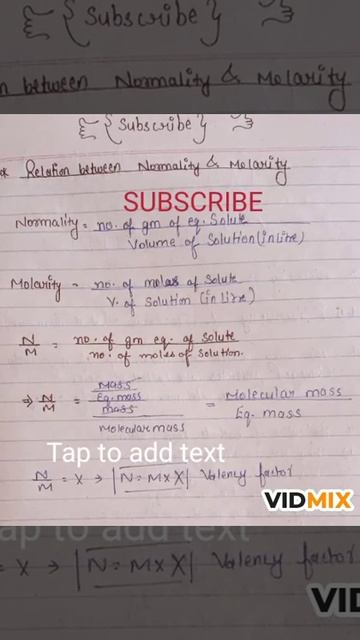 {Subscribe}
n between Normality & Molarity
{Subscribe}
* Relation between Normality & Molarity
SUBSCRIBE
Normality = no. of gm of eq. Solute
Volume of Solution (in Litre)
Molarity = no. of moles of Solute
V. of Solution (in Litre)
N/M = no. of gm eq. of Solute
no. of moles of Solution.
⇒ N/M = Mass
Eq. mass
mass
Molecular mass
= Molecular mass
Eq. mass
Tap to add text
N/M = X → |N = M x X| Valency factor
VIDMIX
ap to add text
= X → |N = M x X| Valency factor
VID